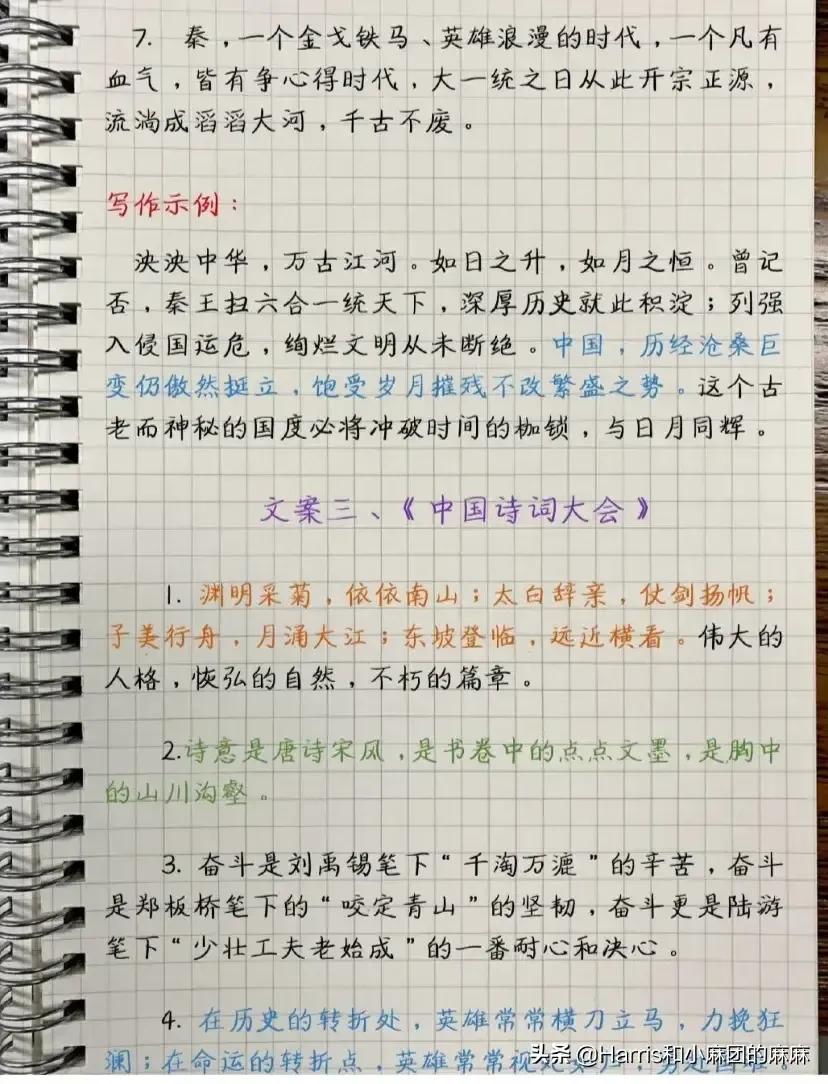 7. 秦，一个金戈铁马、英雄浪漫的时代，一个凡有
血气，皆有争心得时代，大一统之日从此开宗正源，
流淌成滔滔大河，千古不废。
写作示例：
泱泱中华，万古江河。如日之升，如月之恒。曾记
否，秦王扫六合一统天下，深厚历史就此积淀；列强
入侵国运危，绚烂文明从未断绝。中国，历经沧桑巨
变仍傲然挺立，饱受岁月摧残不改繁盛之势。这个古
老而神秘的国度必将冲破时间的枷锁，与日月同辉。
文案三、《中国诗词大会》
1. 渊明采菊，依依南山；太白辞亲，仗剑扬帆；
子美行舟，月涌大江；东坡登临，远近横看。伟大的
人格，恢弘的自然，不朽的篇章。
2.诗意是唐诗宋风，是书卷中的点点文墨，是胸中
的山川沟壑。
3. 奋斗是刘禹锡笔下“千淘万漉”的辛苦，奋斗
是郑板桥笔下的“咬定青山”的坚韧，奋斗更是陆游
笔下“少壮工夫老始成”的一番耐心和决心。
4. 在历史的转折处，英雄常常横刀立马，力挽狂
澜；在命运的转折点，英雄常常视死
头条 @Harris和小麻团的麻麻